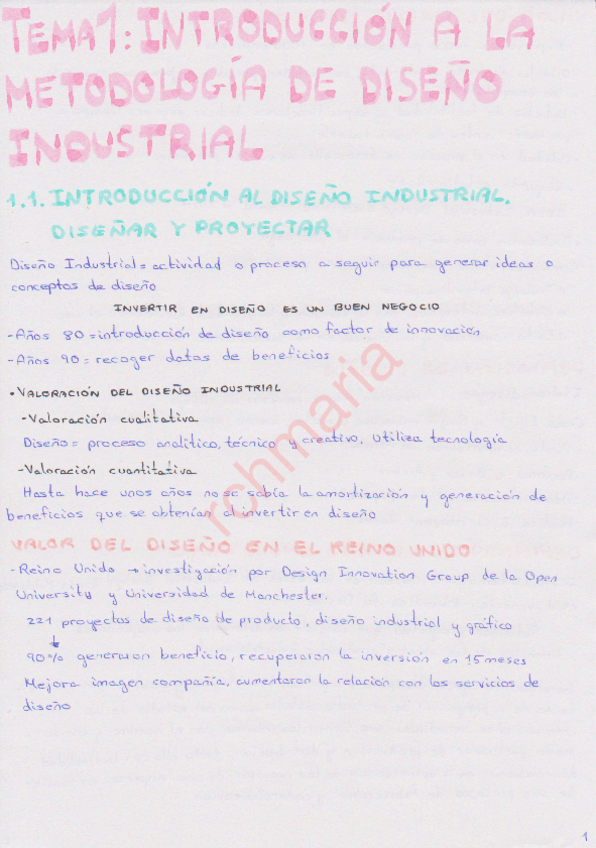 TEMA 1: INTRODUCCIÓN A LA
METODOLOGÍA DE DISEÑO
INDUSTRIAL
1.1. INTRODUCCIÓN AL DISEÑO INDUSTRIAL.
DISEÑAR Y PROYECTAR
Diseño Industrial = actividad o proceso a seguir para generar ideas o
conceptos de diseño
INVERTIR EN DISEÑO ES UN BUEN NEGOCIO
-Años 80 = introducción de diseño como factor de innovación
-Años 90 = recoger datos de beneficios
• VALORACIÓN DEL DISEÑO INDUSTRIAL
-Valoración cualitativa
Diseño = proceso analítico, técnico y creativo. Utiliza tecnología
-Valoración cuantitativa
Hasta hace unos años no se sabía la amortización y generación de
beneficios que se obtenían al invertir en diseño
VALOR DEL DISEÑO EN EL REINO UNIDO
- Reino Unido → investigación por Design Innovation Group de la Open
University y Universidad de Manchester.
221 proyectos de diseño de producto, diseño industrial y gráfico
↓
90% generaron beneficio, recuperaron la inversión en 15 meses
Mejora imagen compañía, aumentaron la relación con los servicios de
diseño
rchmaria
1